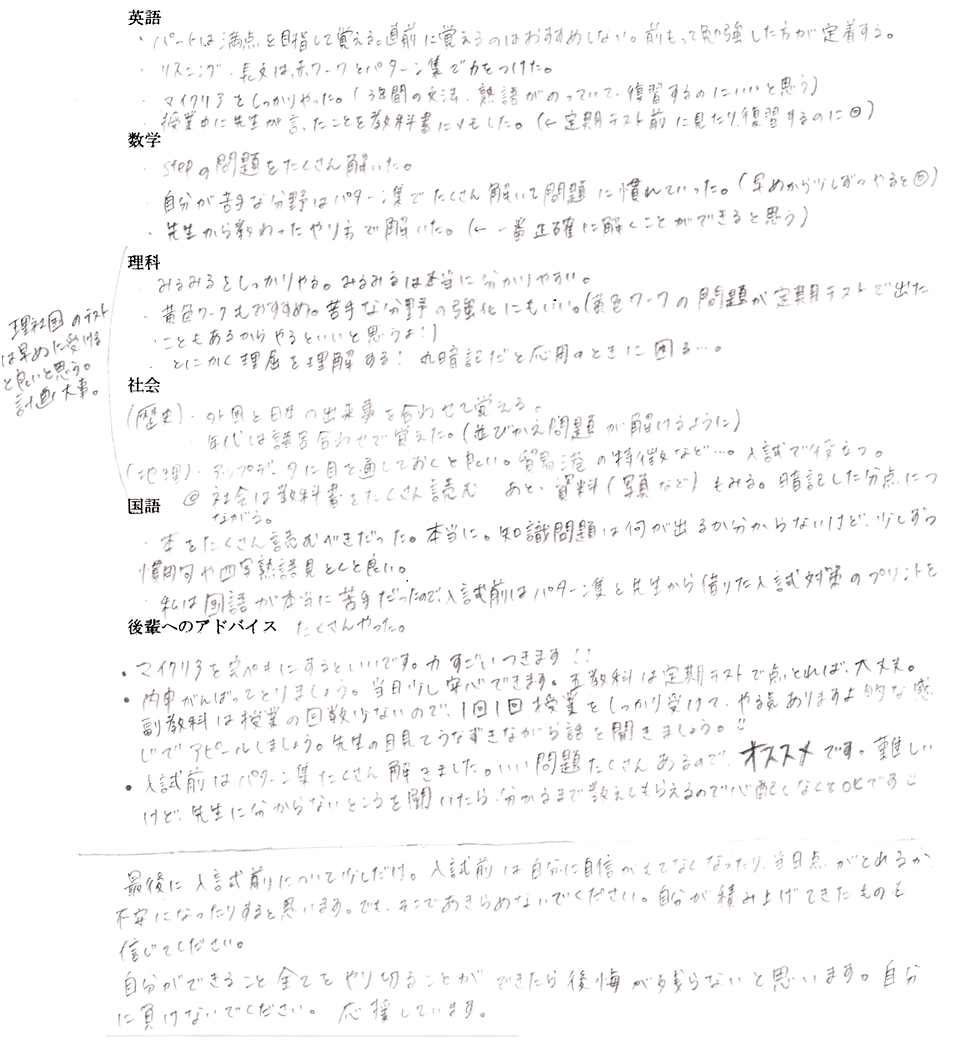 英語
・パートは満点を目指して覚える。直前に覚えるのはおすすめしない。前もって勉強した方が定着する。
・リスニング・長文は、赤ワークとパターン集で力をつけた。
・マイクリアをしっかりやった。(3年間の文法、熟語がのっていて、復習するのにいいと思う)
・授業中に先生が言ったことを教科書にメモした。(←定期テスト前に見たり、復習するのに◎)
数学
・stepの問題をたくさん解いた。
・自分が苦手な分野はパターン集でたくさん解いて問題に慣れていった。(早めから少しずつやると◎)
・先生から教わったやり方で解いた。(←一番正確に解くことができると思う)
理科
・みるみるをしっかりやる。みるみるは本当に分かりやすい。
・黄色ワークもおすすめ。苦手な分野の強化にもいい。(黄色ワークの問題が定期テストで出た
・こともあるからやるといいと思うよ!)
・とにかく理屈を理解する!丸暗記だと応用のときに困る…。
理社国のテスト
は早めに受ける
と良いと思う。
計画大事。
社会
(歴史)・外国と日本の出来事を合わせて覚える。
・年代は語呂合わせで覚えた。(並びかえ問題が解けるように)
(地理)・アップデータに目を通しておくと良い。貿易港の特徴など…。入試で役立つ。
◎ 社会は教科書をたくさん読む あと、資料(写真など)もみる。暗記した分点につ
ながる。
国語
・本をたくさん読むべきだった。本当に。知識問題は何が出るか分からないけど、少しずつ
慣用句や四字熟語見とくと良い。
・私は国語が本当に苦手だったので、入試前はパターン集と先生から借りた入試対策のプリントを
たくさんやった。
後輩へのアドバイス
・マイクリアを完ペキにするといいです。力すごいつきます!!
・内申がんばってとりましょう。当日少し安心できます。五教科は定期テストで点とれば、大丈夫。
副教科は授業の回数少ないので、1回1回授業をしっかり受けて、やる気ありますよ的な感
じでアピールしましょう。先生の目見てうなずきながら話を聞きましょう。
・入試前はパターン集たくさん解きました。いい問題たくさんあるので、オススメです。難しい
けど、先生に分からないところを聞いたら、分かるまで教えてもらえるので心配しなくてOKです
最後に入試前について少しだけ。入試前は自分に自信がもてなくなったり、当日点がとれるか
不安になったりすると思います。でも、そこであきらめないでください。自分が積み上げてきたものを
信じてください。
自分ができること全てをやり切ることができたら後悔が残らないと思います。自分
に負けないでください。 応援しています。